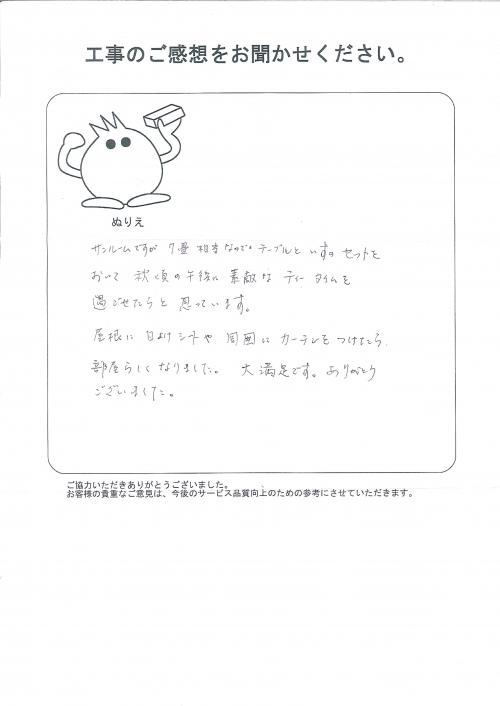 工事のご感想をお聞かせください。
ぬりえ
サンルームですが 7畳 相当なので テーブルと いすの セットを
おいて 秋頃の午後に 素敵な ティータイムを
過ごせたらと 思っています。
屋根に 日よけシートや 周囲に カーテンをつけたら、
部屋らしくなりました。 大満足です。ありがとう
ございました。
ご協力いただきありがとうございました。
お客様の貴重なご意見は、今後のサービス品質向上のための参考にさせていただきます。